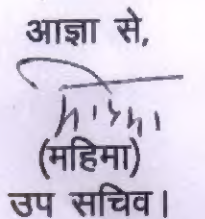 आज्ञा से,
(महिमा)
उप सचिव।